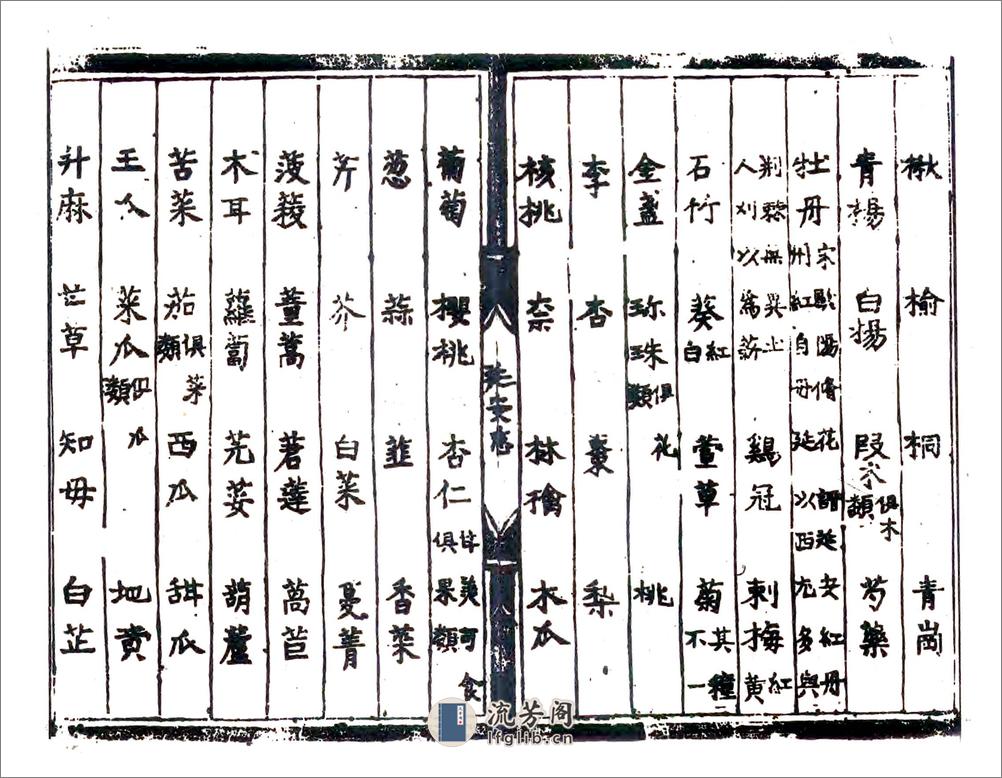 楸 榆 桐 青崗
青楊 白楊 叚木 俱木類 芍藥
牡丹 宋歐陽修花譜延安紅丹州紅自丹延以西尤多與
荆棘無異土人刈以為薪 鷄冠 刺梅 紅黄
石竹 葵 紅白 萱草 菊 其種不一
金盞 珎珠 俱花類 桃
李 杏 棗 梨
核挑 柰 林檎 木瓜
八 延安志 八
葡萄 櫻桃 杏仁 甘美可食俱果類
葱 蒜 韮 香菜
芹 芥 白菜 蔓菁
菠薐 蒿 莙薘 萵苣
木耳 蘿蔔 芫荽 葫蘆
苦菜 茄 俱菜類 西瓜 甜瓜
王瓜 菜瓜 俱瓜類 地黄
升麻 芒草 知母 白芷
流芳阁
lfglib.cn